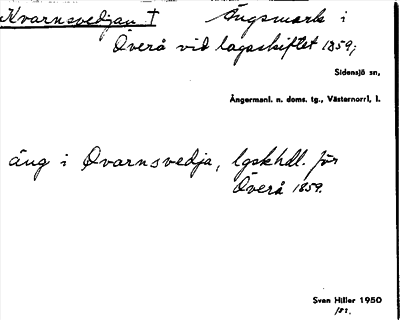 Kvarnsvedjan † Ängsmark i
Överå vid lagaskiftet 1859;
Sidensjö sn,
Ångermanl. n. doms. tg., Västernorrl, l.
äng i Qvarnsvedja, lgskhdl. för
Överå 1859.
Sven Hiller 1950